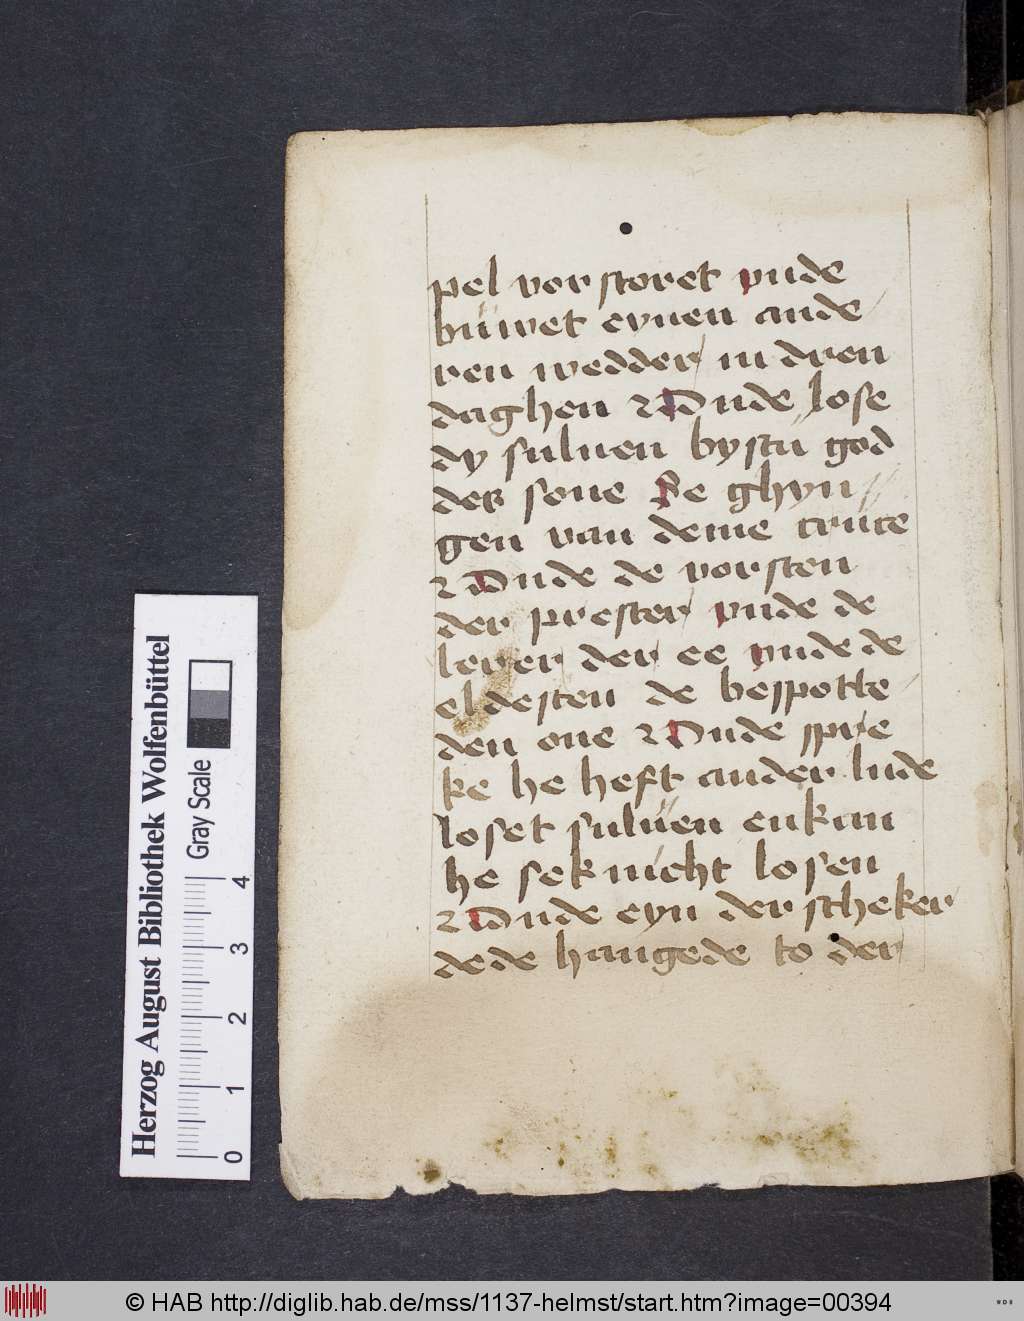 pel vorstoret vnde
büwet eynen ande
ren wedder in dren
daghen Vnde lose
dy suluen bystu god
des sone Se ghyn
gen van deme crüce
Vnde de vorsten
der prester vnde de
lerer der ee vnde de
eldesten de bespotte
den one Vnde spre
ke he heft ander lude
loset suluen enkan
he sek nicht losen
Vnde eyn der scheker
dede hangede to der
Herzog August Bibliothek Wolfenbüttel
Gray Scale
0 1 2 3 4
© HAB http://diglib.hab.de/mss/1137-helmst/start.htm?image=00394